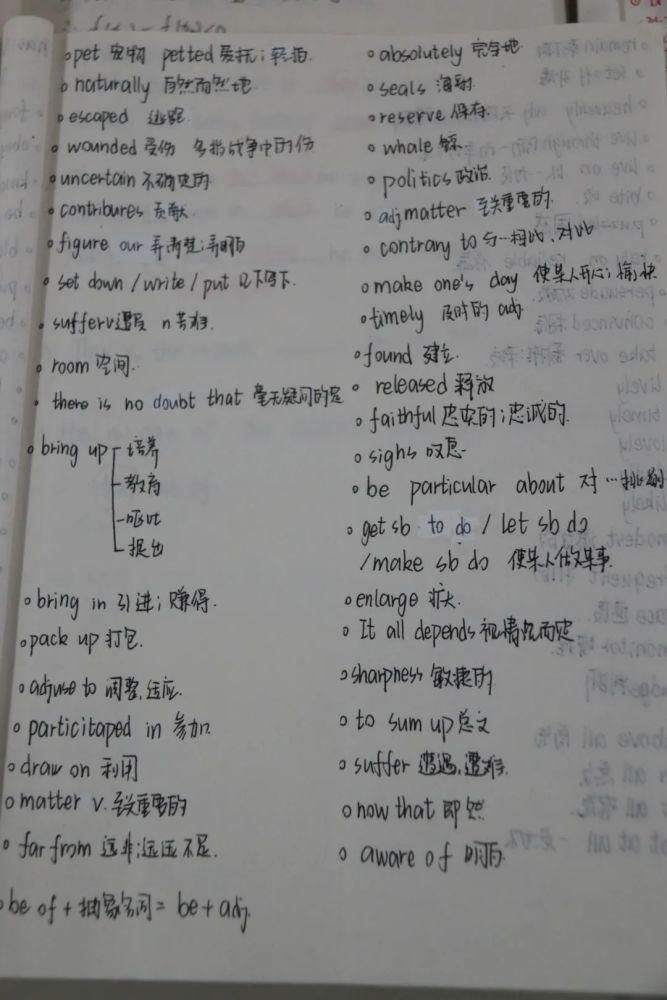 pet 宠物 petted 爱抚；轻拍.
naturally 自然而然地
escaped 逃跑
wounded 受伤 多指战争中的伤
uncertain 不确定的
contribures 贡献
figure our 弄清楚；弄明白
set down / write / put 记下写下.
suffer v遭受 n苦难.
room 空间.
there is no doubt that 毫无疑问的是
bring up 培养
教育
呕吐
提出
bring in 引进；赚得.
pack up 打包.
adjuse to 调整,适应.
particitaped in 参加
draw on 利用
matter v. 至关重要的
far from 远非;远远不是.
be of + 抽象名词 = be + adj.
absolutely 完全地
seals 海豹
reserve 保存.
whale 鲸.
politics 政治.
adj matter 至关重要的.
contrary to 与…相比、对比
make one's day 使某人开心；愉快
timely 及时的 adj
found 建立.
released 释放
faithful 忠实的；忠诚的.
sighs 叹息
be particular about 对…挑剔
get sb to do / let sb do
/make sb do 使某人做某事.
enlarge 扩大
It all depends 视情况而定
sharpness 敏捷的
to sum up 总文
suffer 遭遇,遭难.
now that 即然
aware of 明白